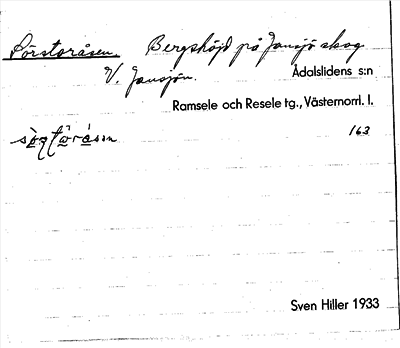 Sörstoråsen. Bergshöjd på Jansjö skog
V. Jansjön.
Ådalslidens s:n
Ramsele och Resele tg., Västernorrl. l.
163
Sven Hiller 1933